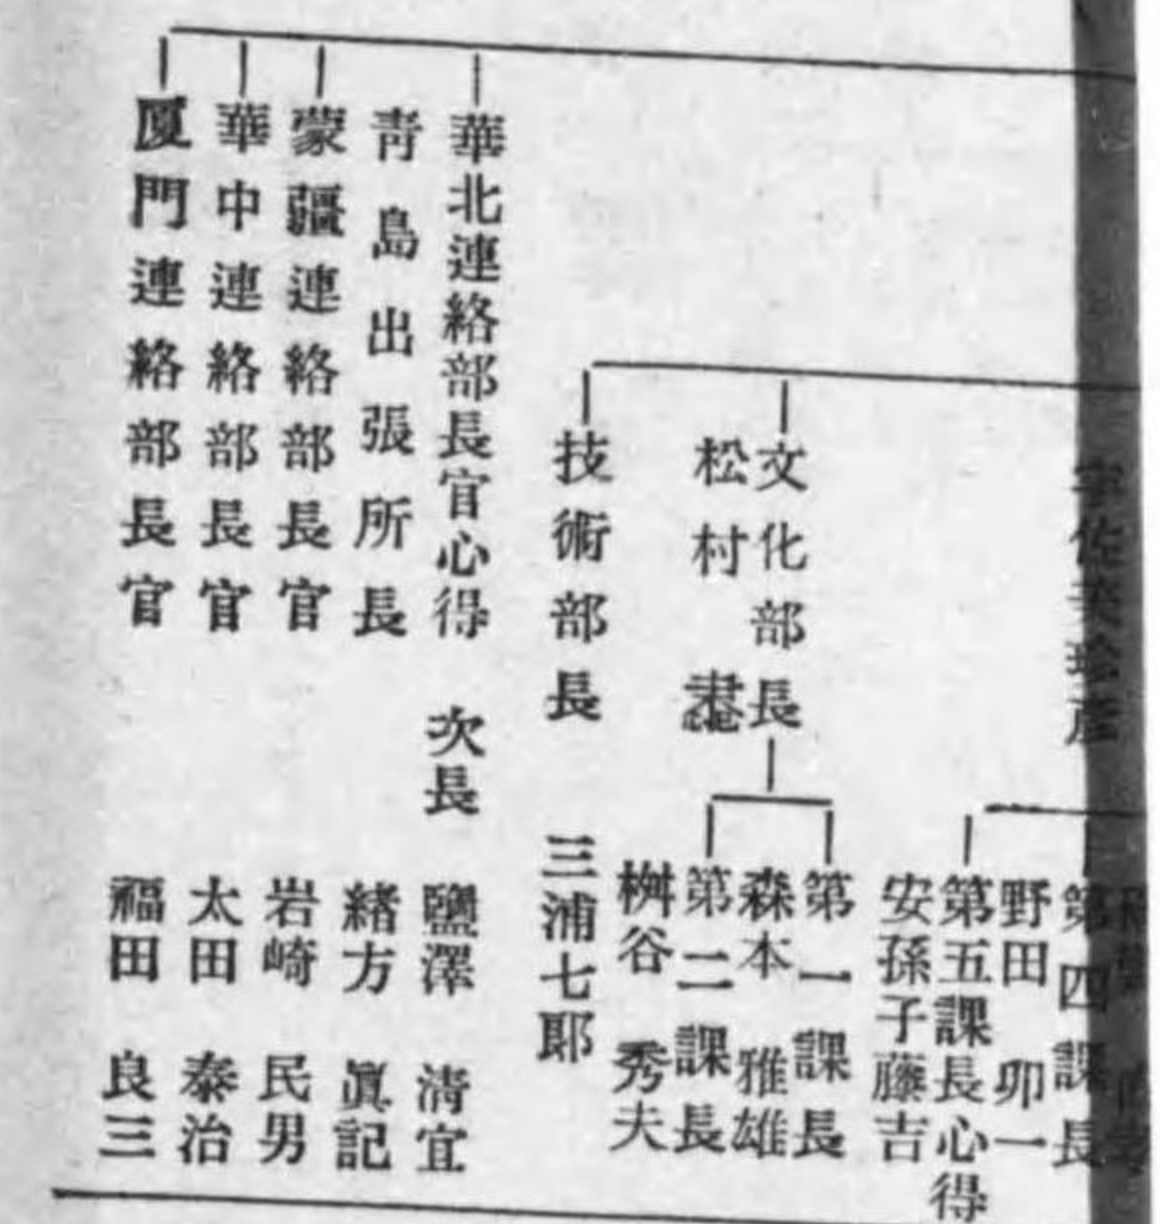 宇佐美珍彦
第四課長
野田 卯一
第五課長心得
安孫子藤吉
文化部長
松村 𩆜
第一課長
森本 雅雄
第二課長
桝谷 秀夫
技術部長
三浦七郎
華北連絡部長官心得 次長 鹽澤 淸宜
靑島出張所長 緖方 眞記
蒙疆連絡部長官 岩崎 民男
華中連絡部長官 太田 泰治
厦門連絡部長官 福田 良三